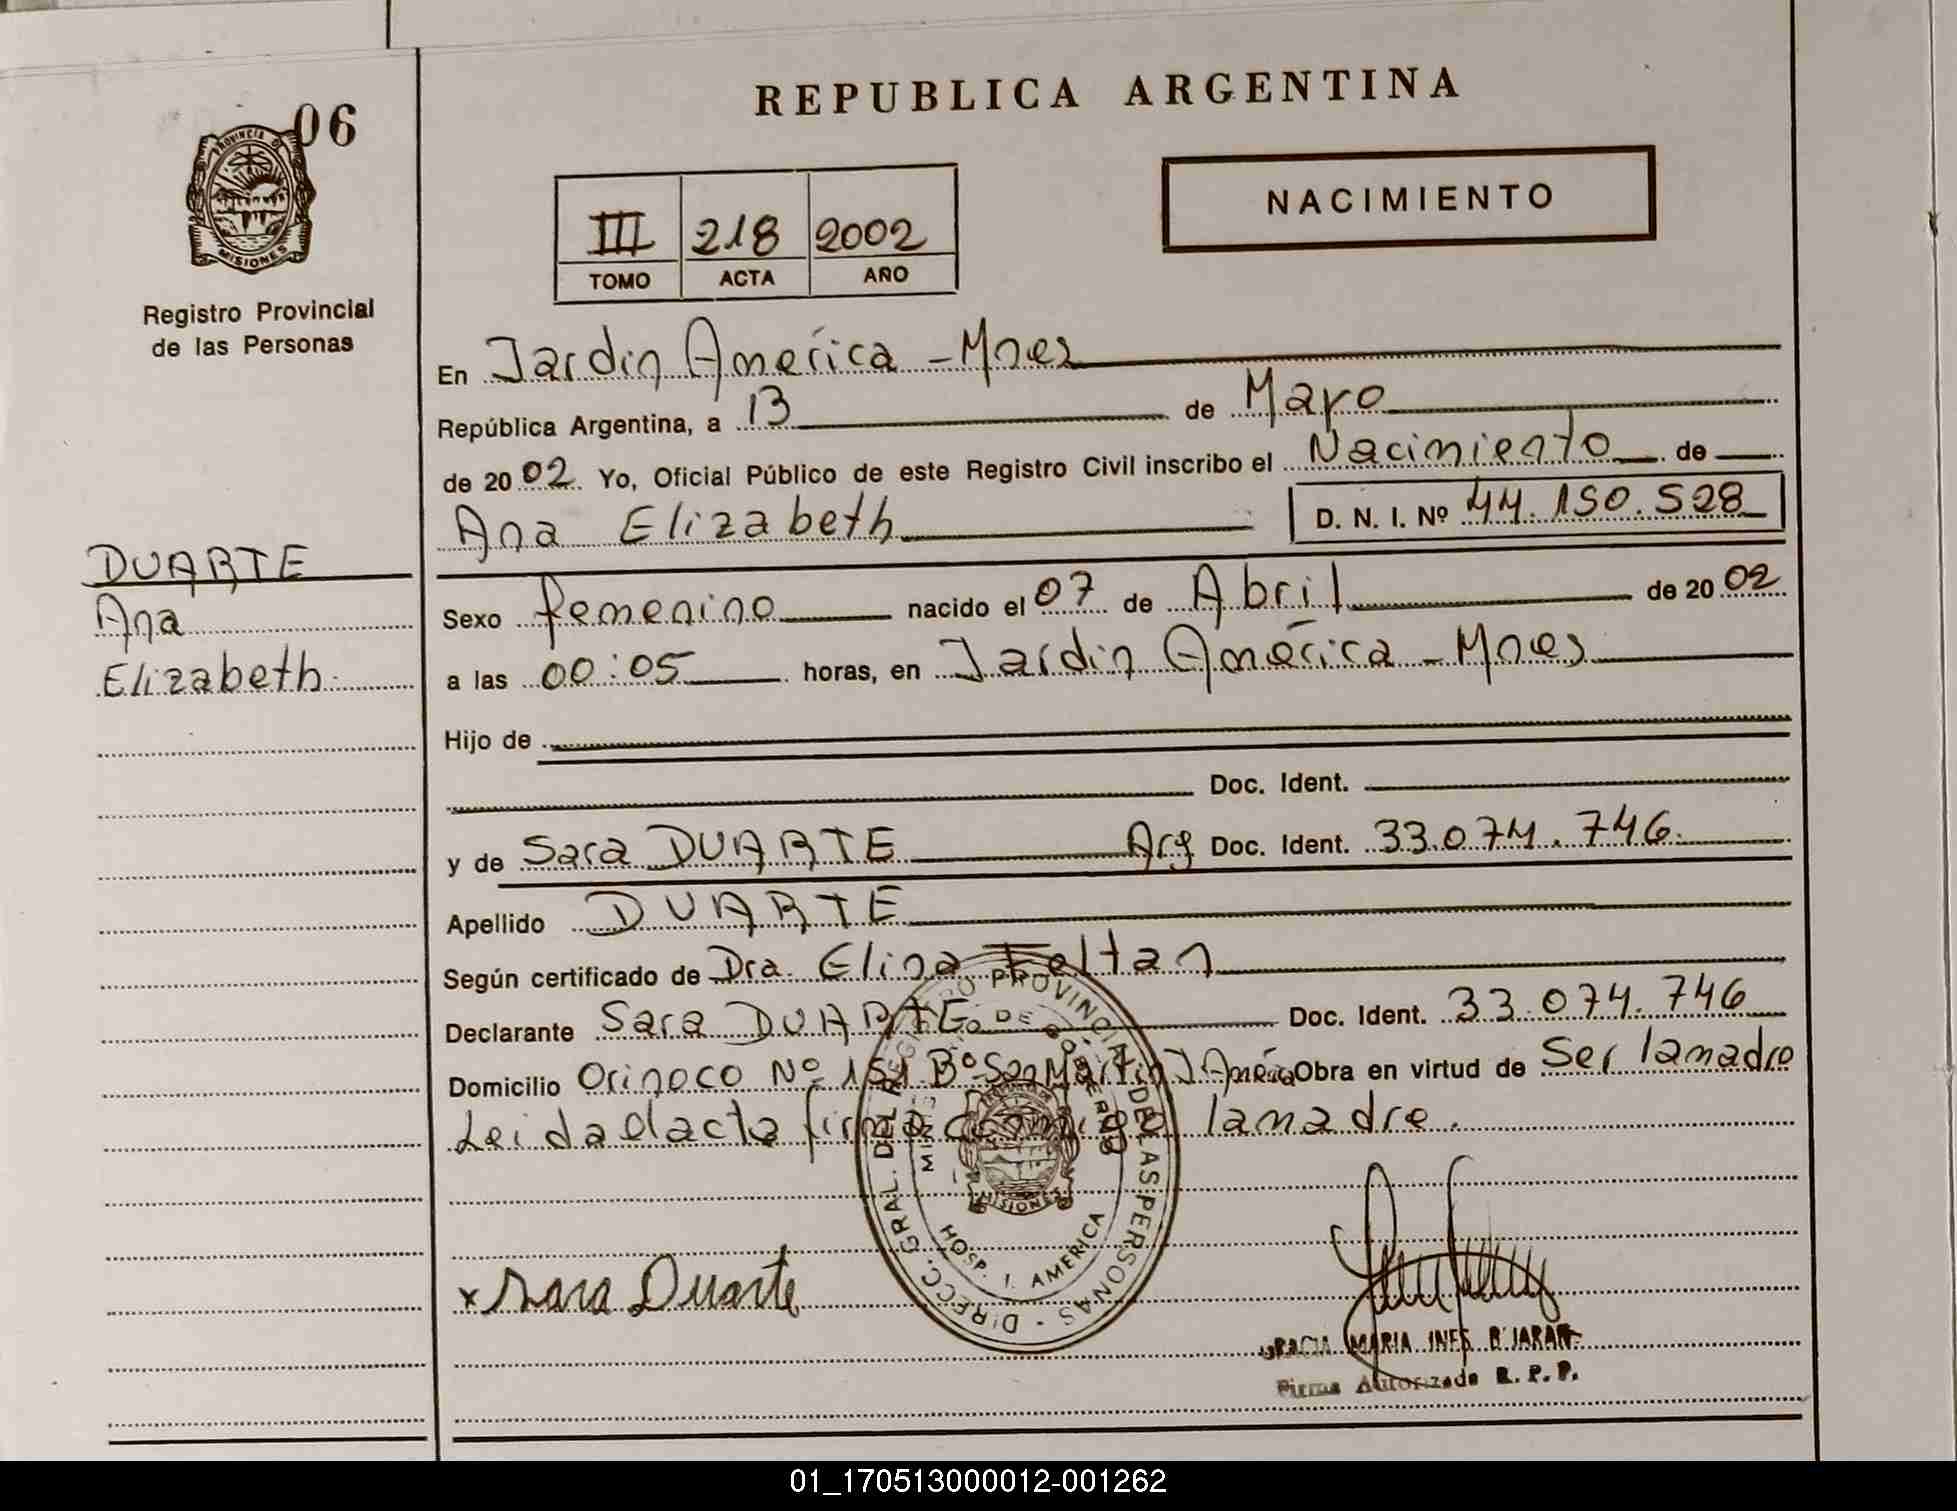 REPUBLICA ARGENTINA
06
PROVINCIA DE
MISIONES
Registro Provincial
de las Personas
NACIMIENTO
III 218 2002
TOMO ACTA AÑO
En Jardin América - Mnes
República Argentina, a 13 de Mayo
de 2002 Yo, Oficial Público de este Registro Civil inscribo el Nacimiento de
Ana Elizabeth D. N. I. Nº 44.150.528
DUARTE
Ana
Elizabeth
Sexo femenino nacido el 07 de Abril de 2002
a las 00:05 horas, en Jardin América - Mnes
Hijo de
Doc. Ident.
y de Sara DUARTE Arg Doc. Ident. 33.074.746
Apellido DUARTE
Según certificado de Dra. Elina Feltan
Declarante Sara DUARTE Doc. Ident. 33.074.746
Domicilio Orinoco Nº 151 Bº San Martin J América Obra en virtud de Ser la madre
Leida el acta firma conmigo la madre.
DIRECC. GRAL. DEL REGISTRO PROVINCIAL DE LAS PERSONAS
HOSP. J. AMERICA
MISIONES
x Sara Duarte
MARIA INES B JARAN
Firma Autorizada R. P. P.
01_170513000012-001262